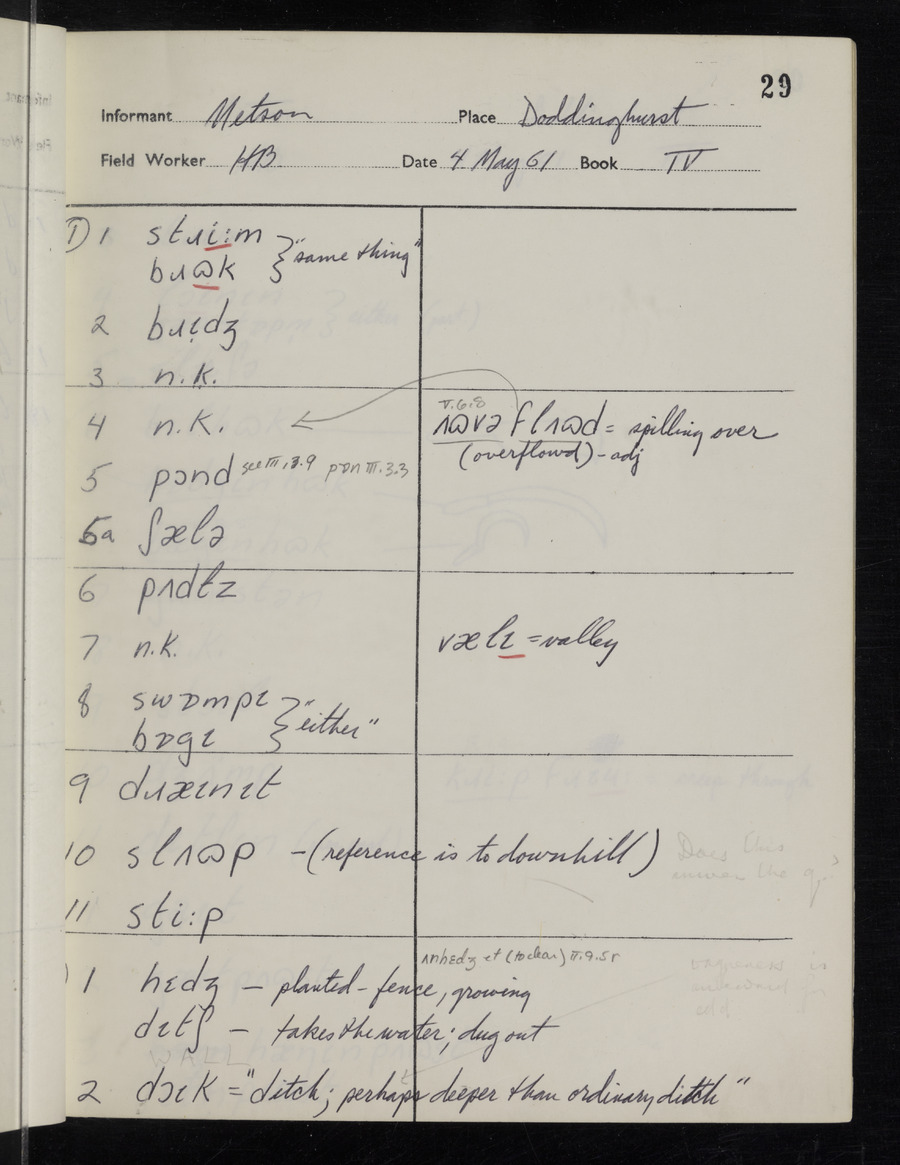 29
Informant Metson Place Doddinghurst
Field Worker HB Date 4 May 61 Book IV
I) 1 stɹi:m
bɹɷk } "same thing"
2 bɹɪdʒ
3 n.k.
4 n.k.
V.6.8
ʌɷvə flʌɷd = spilling over
(overflowd) - adj
5 pɔnd see III.3.9 pɒn III.3.3
5a ʃælə
6 pʌdɫz
7 n.k. vælɪ = valley
8 swɒmpɪ
bɒgɪ } "either"
9 dɹæɪnɪt
10 slʌɷp - (reference is to downhill) Does this answer the q. ?
11 sti:p
ʌnhɛdʒ et (to clear)
1 hɛdʒ - planted - fence, growing
dɪtʃ - takes the water; dug out
WALL
2 dɔɪk = "ditch; perhaps deeper than ordinary ditch"